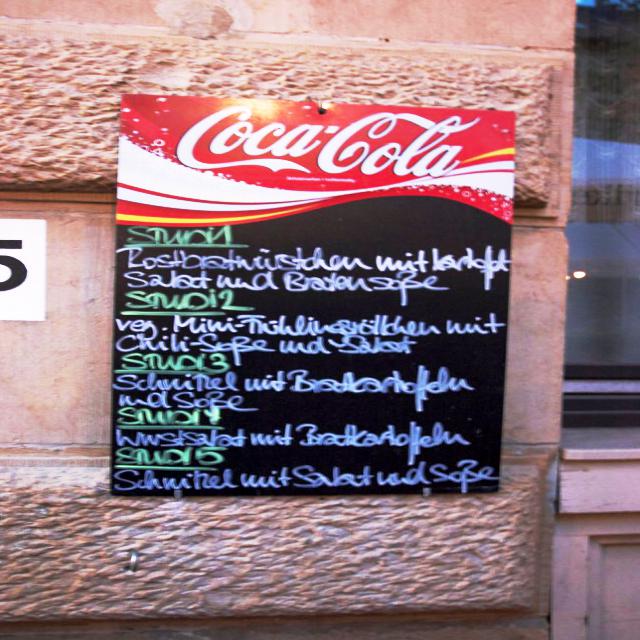 Coca-Cola
5
STUDI 1
Rostbratwürstchen mit Kartoffel
Salat und Bratensoße
STUDI 2
veg. Mini-Frühlingsröllchen mit
Chili-Soße und Salat
STUDI 3
Schnitzel mit Bratkartoffeln
und Soße
STUDI 4
Wurstsalat mit Bratkartoffeln
STUDI 5
Schnitzel mit Salat und Soße